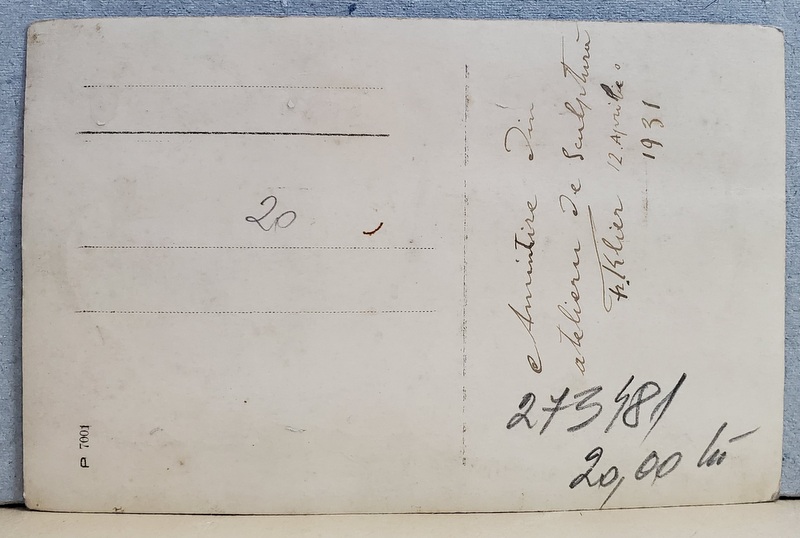 Amintire din
atelieru de Sculptură
Fr. Klier 12. Aprilie.
1931
20
273481
20,00 lei
P 7001